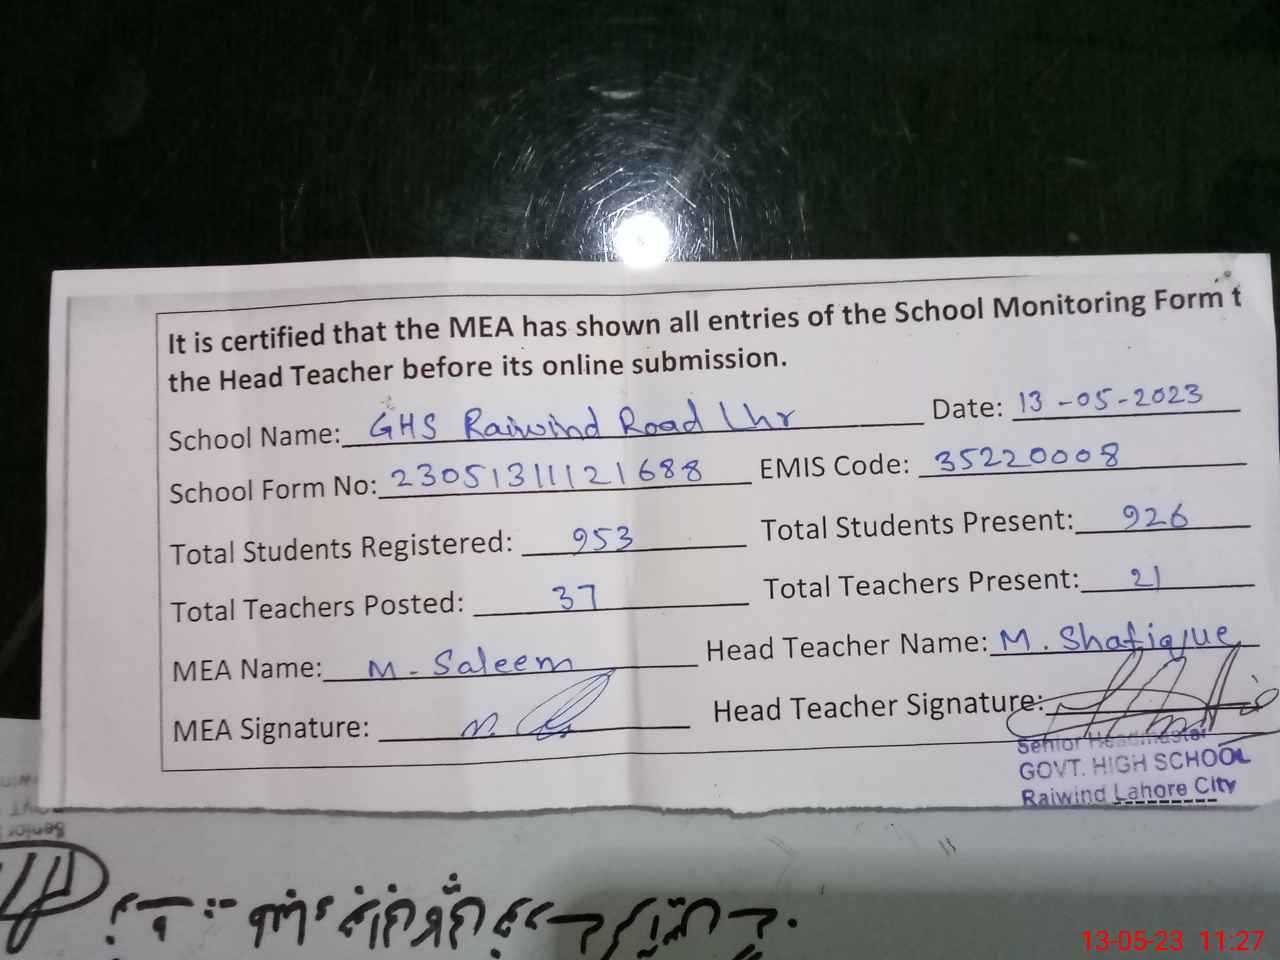 It is certified that the MEA has shown all entries of the School Monitoring Form t
the Head Teacher before its online submission.
School Name: GHS Raiwind Road Lhr Date: 13-05-2023
School Form No: 23051311121688 EMIS Code: 35220008
Total Students Registered: 953 Total Students Present: 926
Total Teachers Posted: 37 Total Teachers Present: 21
MEA Name: M. Saleem Head Teacher Name: M. Shafique
MEA Signature: Head Teacher Signature:
Senior Headmaster
GOVT. HIGH SCHOOL
Raiwind Lahore City
13-05-23 11:27